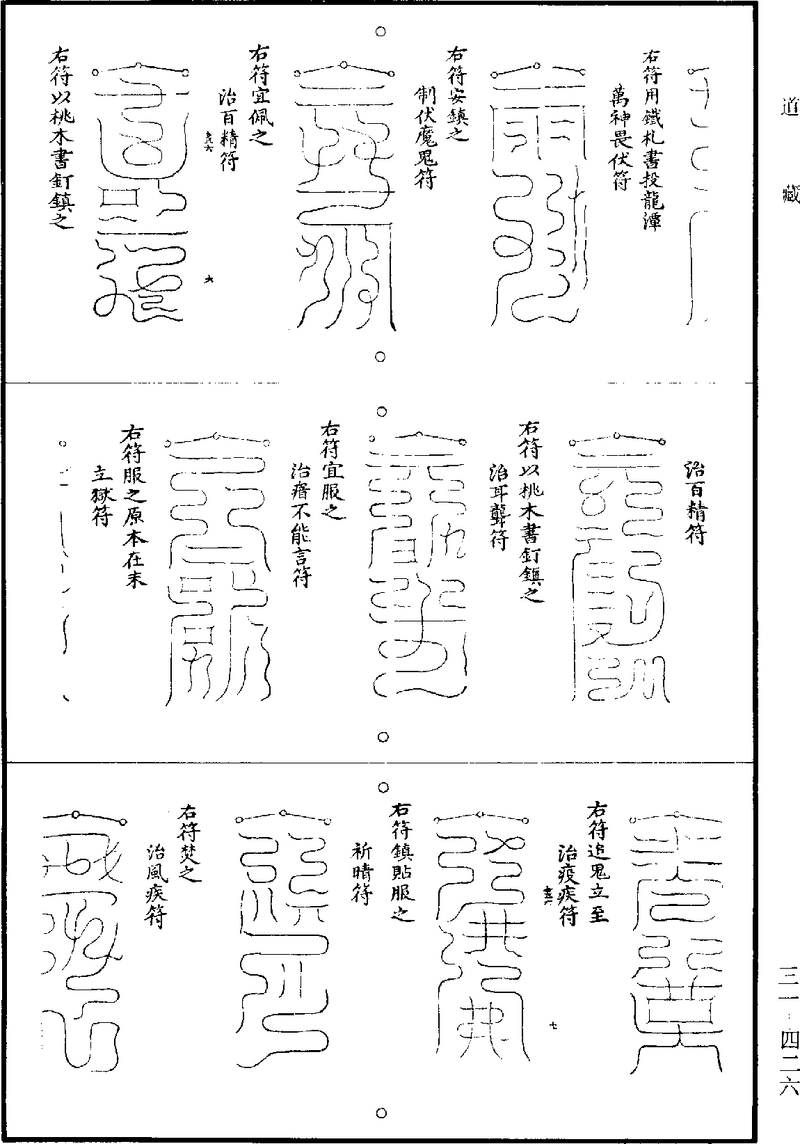 道藏
右符用鐵札書投龍潭
萬神畏伏符
右符安鎮之
制伏魔鬼符
右符宜佩之
治百精符
六
右符以桃木書釘鎮之
治百精符
右符以桃木書釘鎮之
治耳聾符
右符宜服之
治瘖不能言符
右符服之原本在末
立獄符
右符追鬼立至
治疫疾符
七
右符鎮貼服之
祈晴符
右符焚之
治風疾符
三一·四二六